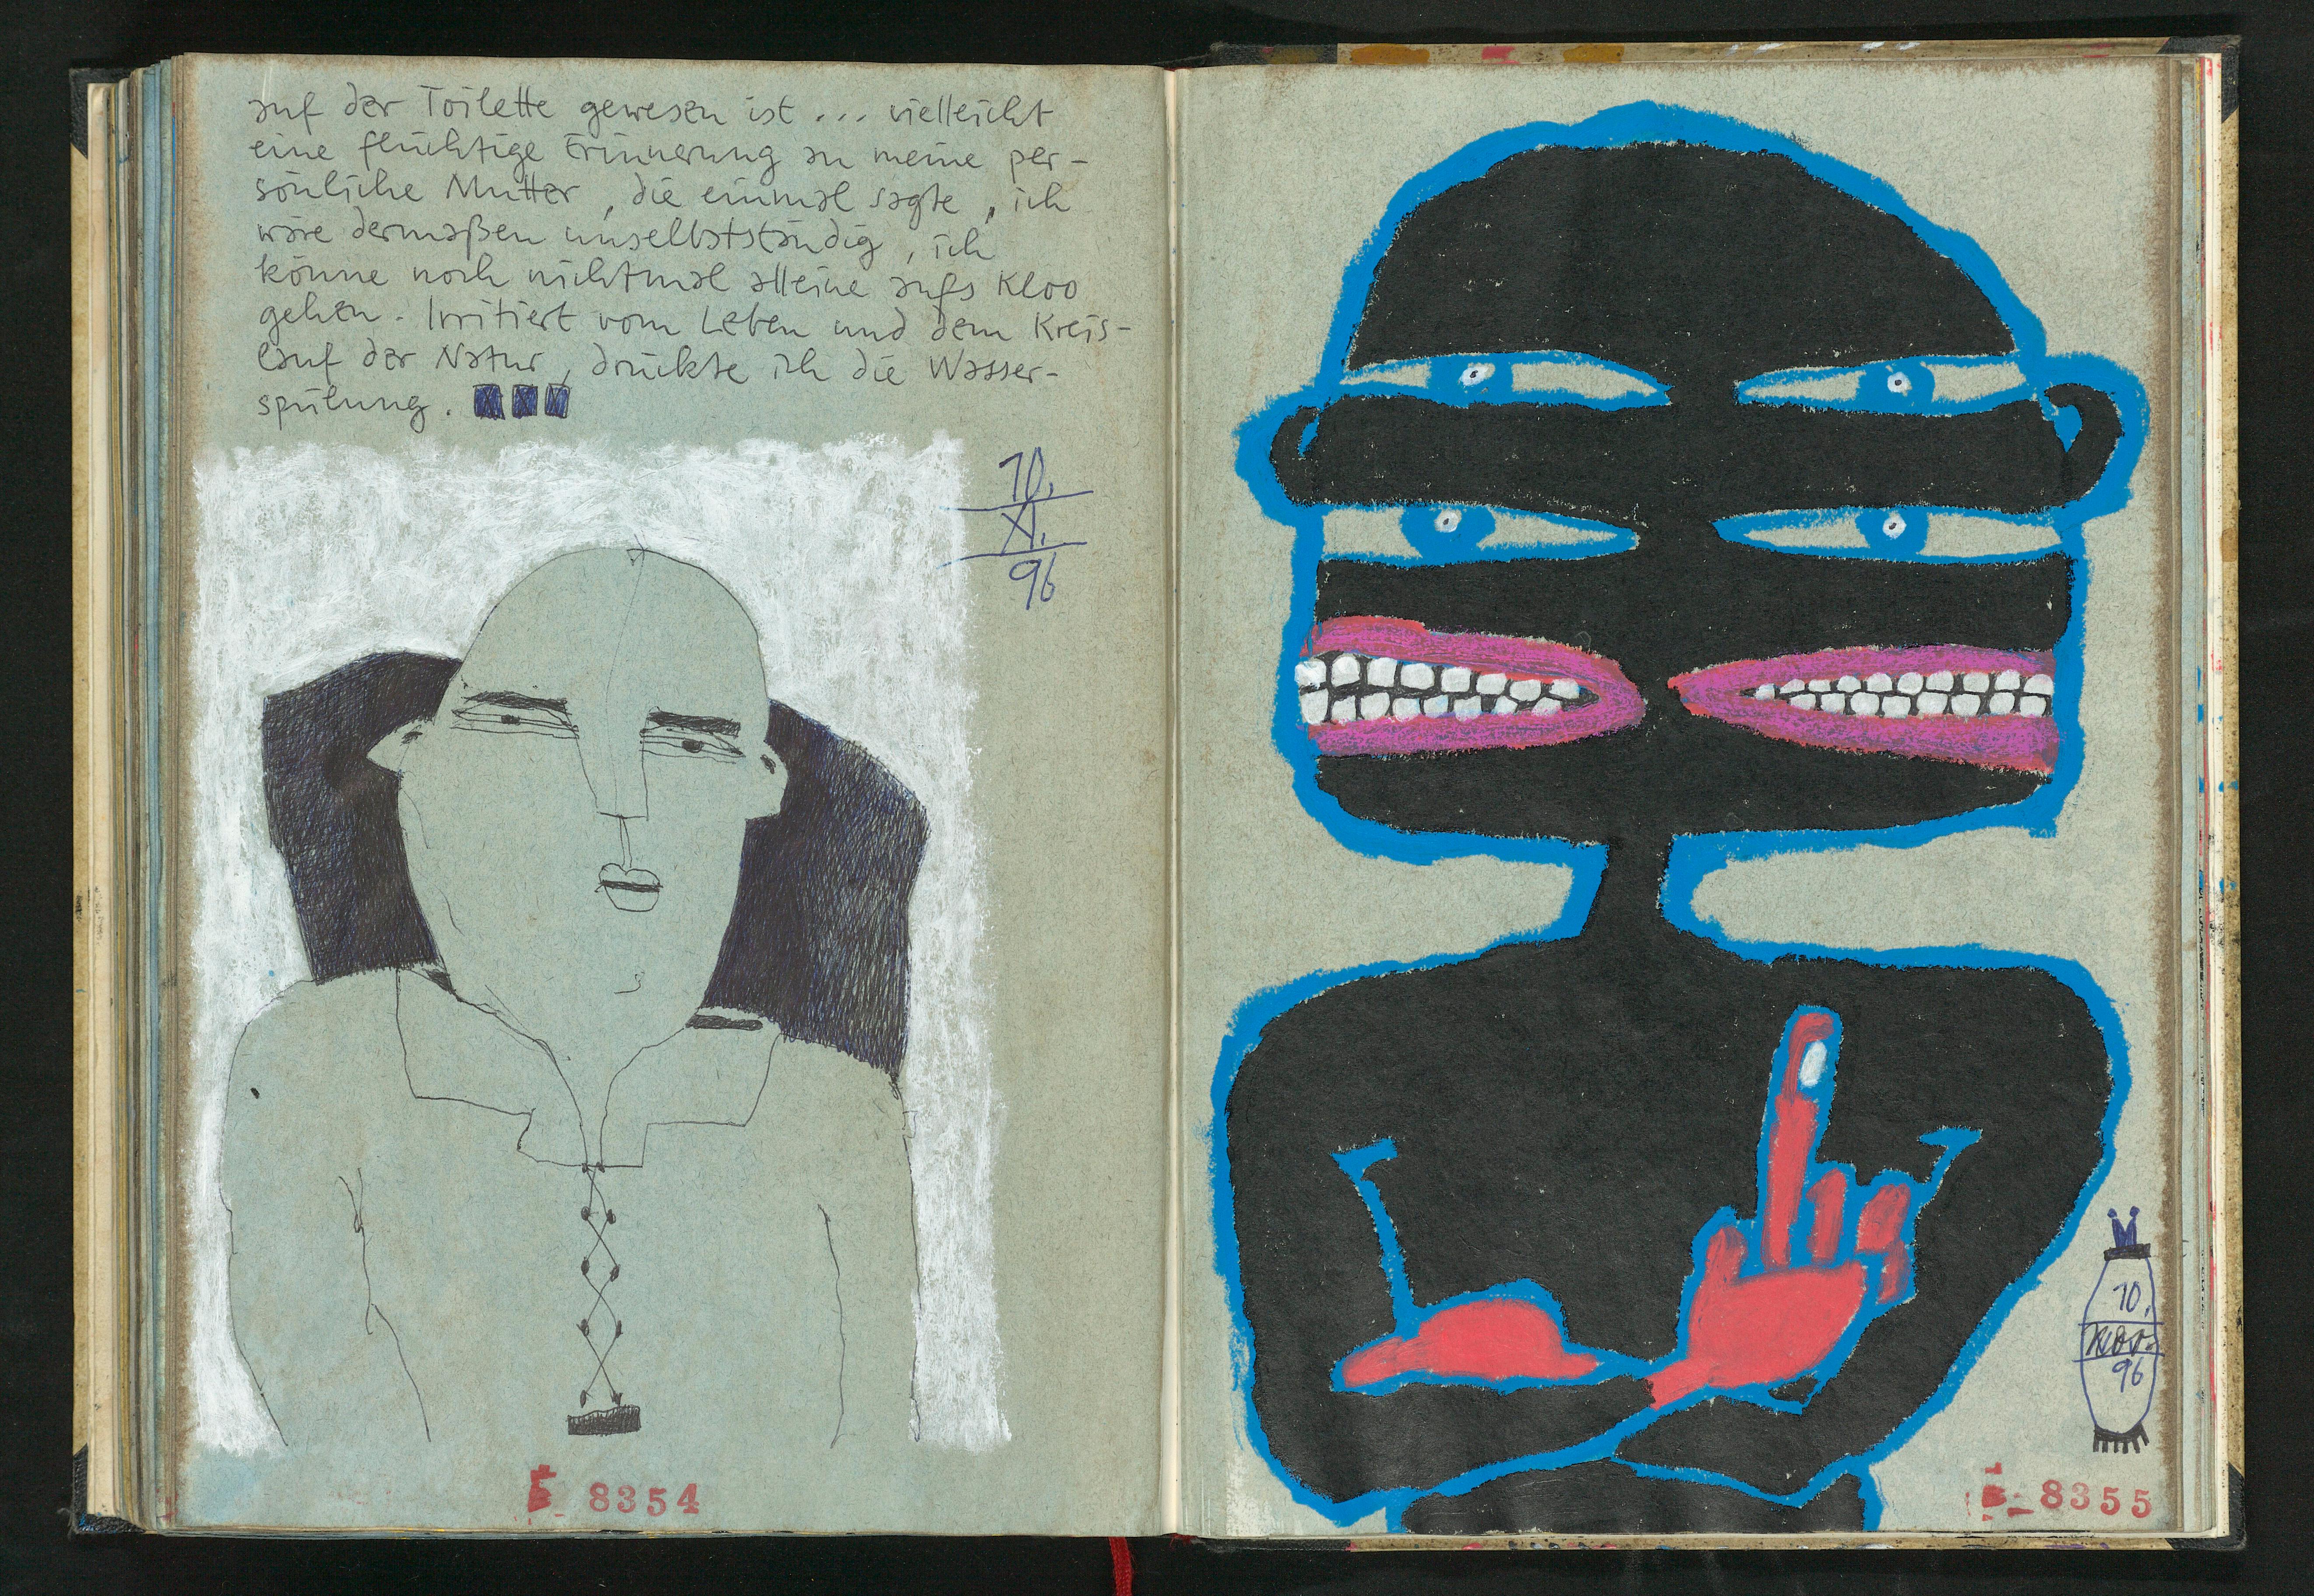 auf der Toilette gewesen ist ... vielleicht
eine flüchtige Erinnerung an meine per-
sönliche Mutter, die einmal sagte, ich
wäre dermaßen unselbstständig, ich
könne noch nichtmal alleine aufs Kloo
gehen. Irritiert vom Leben und dem Kreis-
lauf der Natur, drückte ich die Wasser-
spülung.
10.
XI.
96
8354
10.
Nov.
96
8355